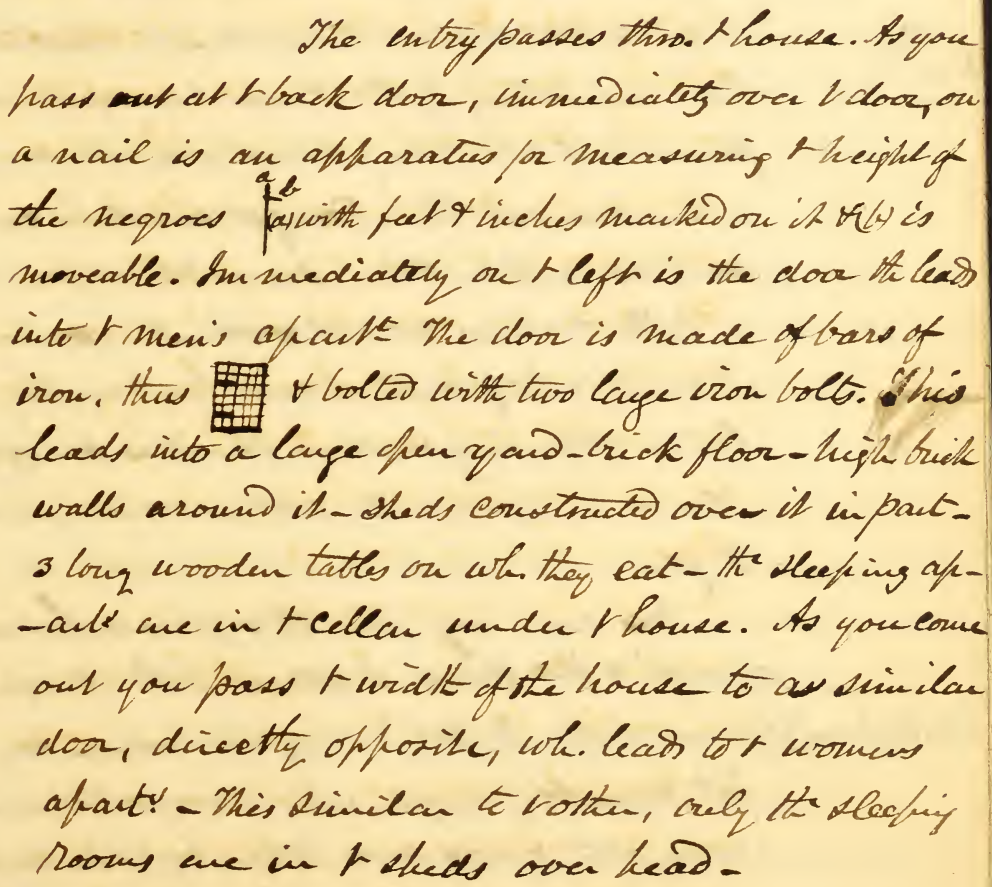 The entry passes thro. t house. As you
pass out at t back door, immediately over t door, on
a nail is an apparatus for measuring t height of
a b
the negroes (a) with feet & inches marked on it & (b) is
moveable. Immediately on t left is the door th leads
into t men's apartt The door is made of bars of
iron, thus & bolted with two large iron bolts. This
leads into a large open yard - brick floor - high brick
walls around it - sheds constructed over it in part -
3 long wooden tables on wh. they eat - the sleeping ap-
-arts are in t cellar under t house. As you come
out you pass t width of the house to a similar
door, directly opposite, wh. leads to t womens
aparts. - This similar to t other, only the sleeping
rooms are in t sheds over head -